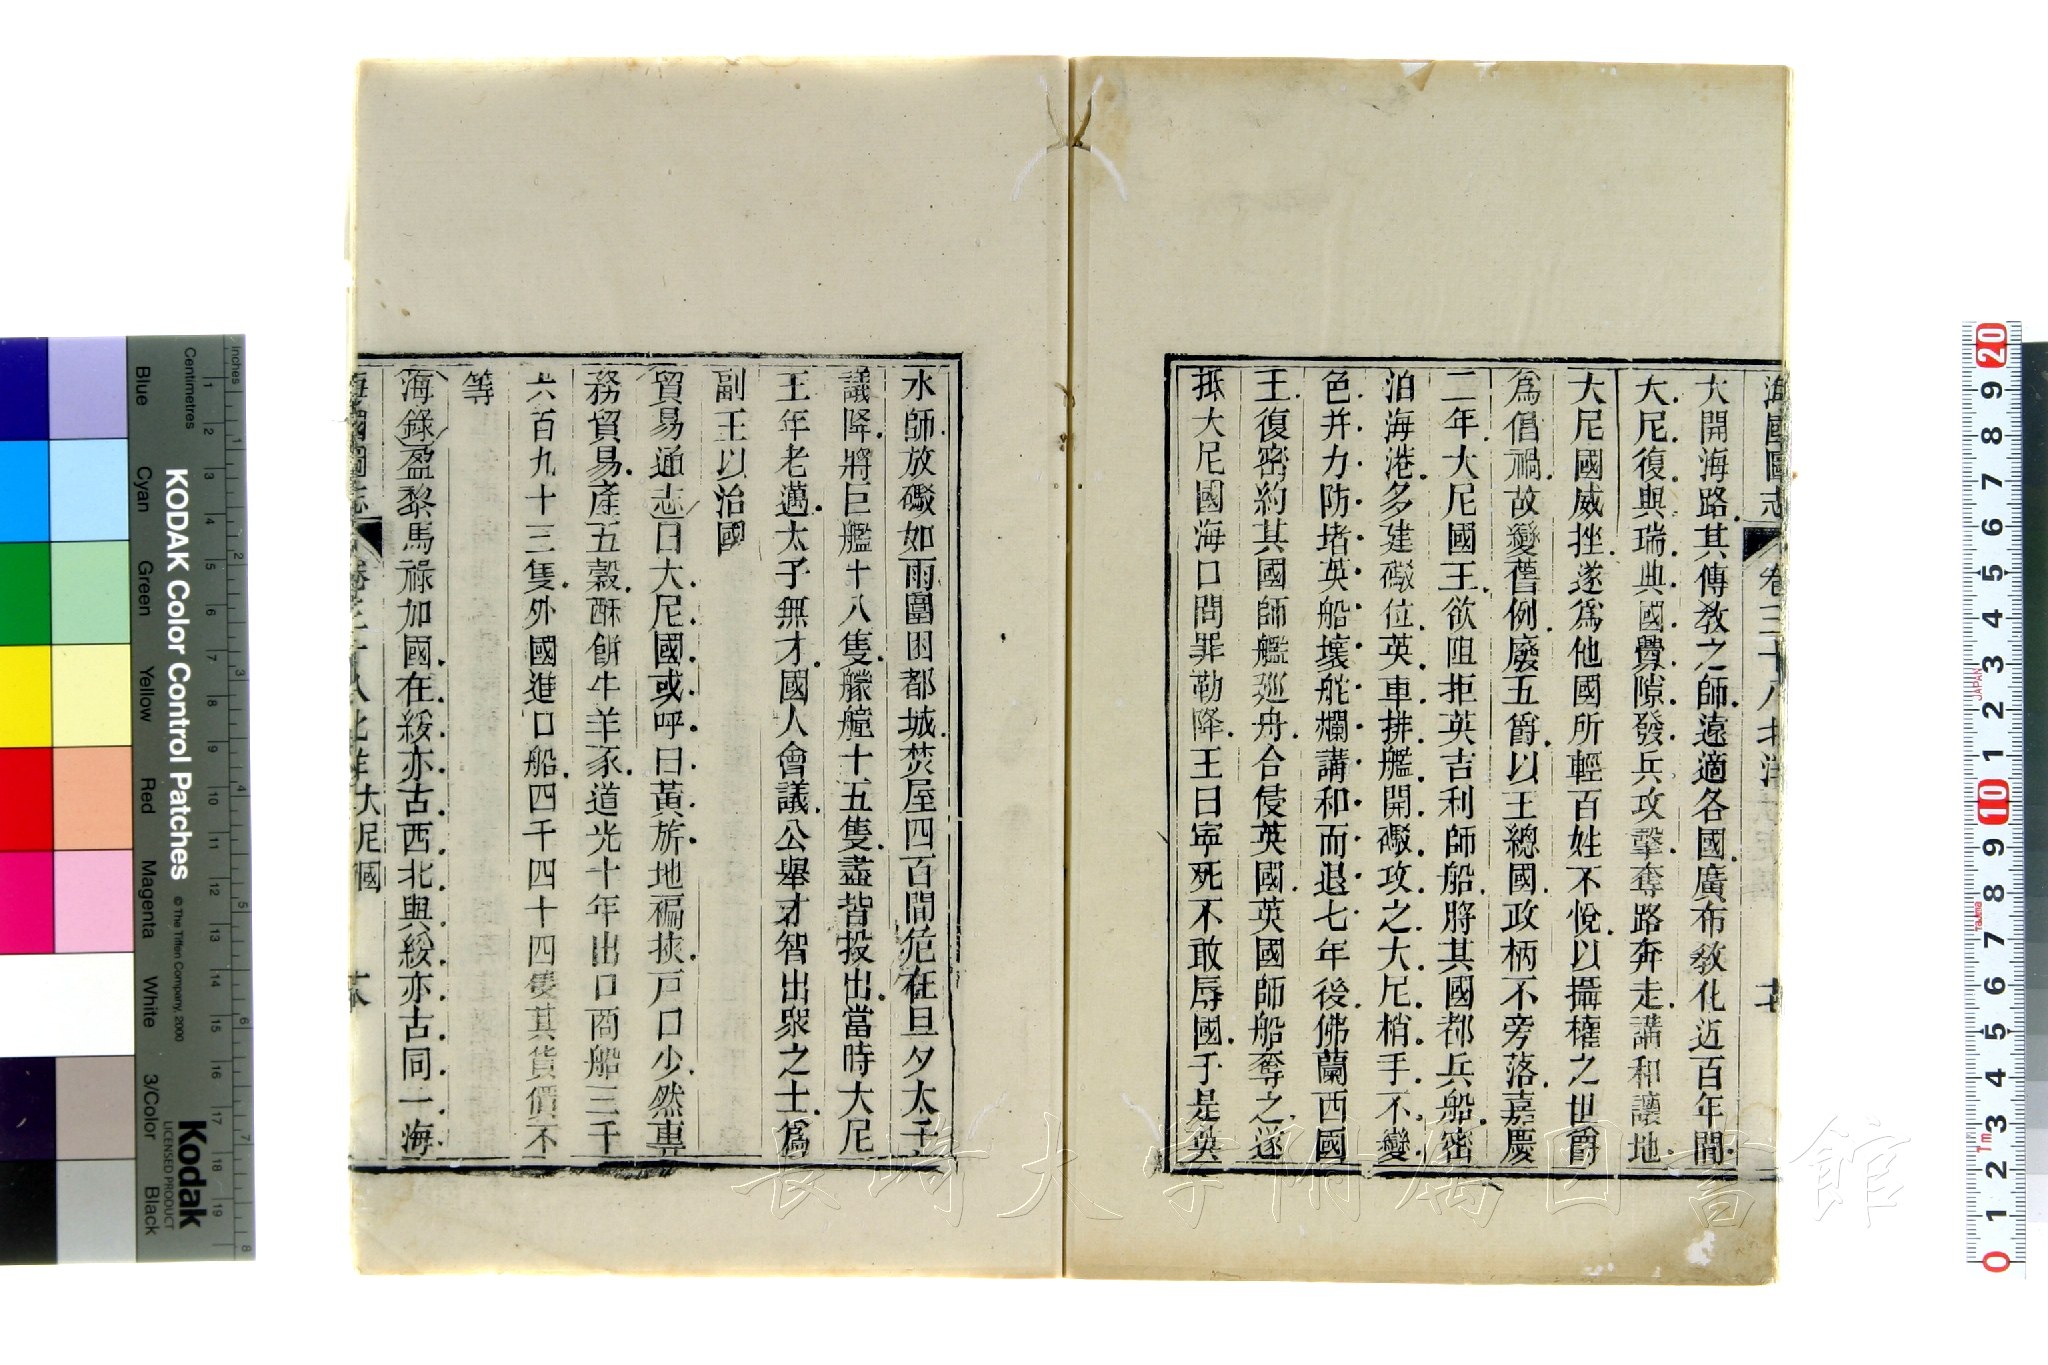 海國圖志 卷三十八 北洋
大開海路其傳教之師遠適各國廣布教化近百年間
大尼復與瑞典國釁隙發兵攻擊奪路奔走講和讓地
大尼國威挫遂爲他國所輕百姓不悅以攝權之世爵
爲倡禍故變舊例廢五爵以王總國政柄不旁落嘉慶
二年大尼國王欲阻拒英吉利師船將其國都兵船密
泊海港多建礮位英車排艦開礮攻之大尼梢手不變
色并力防堵英船壞舵爛講和而退七年後佛蘭西國
王復密約其國師艦廵舟合侵英國英國師船奪之遂
抵大尼國海口問罪勒降王曰寧死不敢辱國于是英
水師放礮如雨圍困都城焚屋四百間危在旦夕太子
議降將巨艦十八隻艨艟十五隻盡皆投出當時大尼
王年老邁太子無才國人會議公舉才智出衆之士爲
副王以治國
貿易通志曰大尼國或呼曰黃旂地褊挾戸口少然專
務貿易產五穀酥餅牛羊豕道光十年出口商船三千
六百九十三隻外國進口船四千四十四隻其貨價不
等
海錄盈黎馬祿加國在綏亦古西北與綏亦古同一海
海國圖志 卷三十八 北洋 大尼國
長崎大学附属図書館
KODAK Color Control Patches
© The Tiffen Company, 2000
Kodak
LICENSED PRODUCT
Inches
Centimetres
Blue
Cyan
Green
Yellow
Red
Magenta
White
3/Color
Black